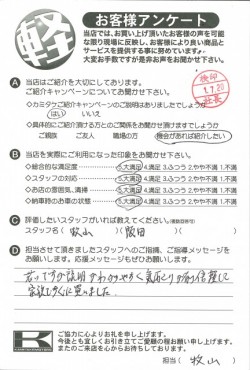 軽
お客様アンケート
当店では、お買い上げ頂いたお客様の声を可能
な限り現場に反映し、お客様により良い商品と
サービスを提供する事に努めています。
大変お手数ですが是非お声をお聞かせ下さい。
A 当店はご紹介を大切にしてあります。
ご紹介キャンペーンについてお聞かせ下さい。
◇カミタケご紹介キャンペーンのご説明はありましたでしょうか
はい いいえ
検印
1.1.20
社長
◇具体的にご紹介頂ける方とのご関係をお聞かせ頂けますでしょうか
ご親族 ご友人 職場の方 機会があれば紹介したい
B 当店を実際にご利用になった印象をお聞かせ下さい。
◇総合的な満足度 5.大満足 4.満足 3.ふつう 2.やや不満 1.不満
◇スタッフの対応 5.大満足 4.満足 3.ふつう 2.やや不満 1.不満
◇お店の雰囲気、清掃 5.大満足 4.満足 3.ふつう 2.やや不満 1.不満
◇納車時のお車の状態 5.大満足 4.満足 3.ふつう 2.やや不満 1.不満
C 評価したいスタッフがいれば教えてください。(複数回答可)
スタッフ名( 牧山 )( 飯田 )
D 担当させて頂きましたスタッフへのご指摘、ご指導メッセージを
お願いします。応援メッセージもぜひお願いします。
若いですが説明がわかりやすく
ご協力に心よりお礼を申し上げます。
今後とも宜しくお引き立てご愛顧の程お願い申し上げます。
またのご来店を心からお待ちしております。
担当( 牧山 )